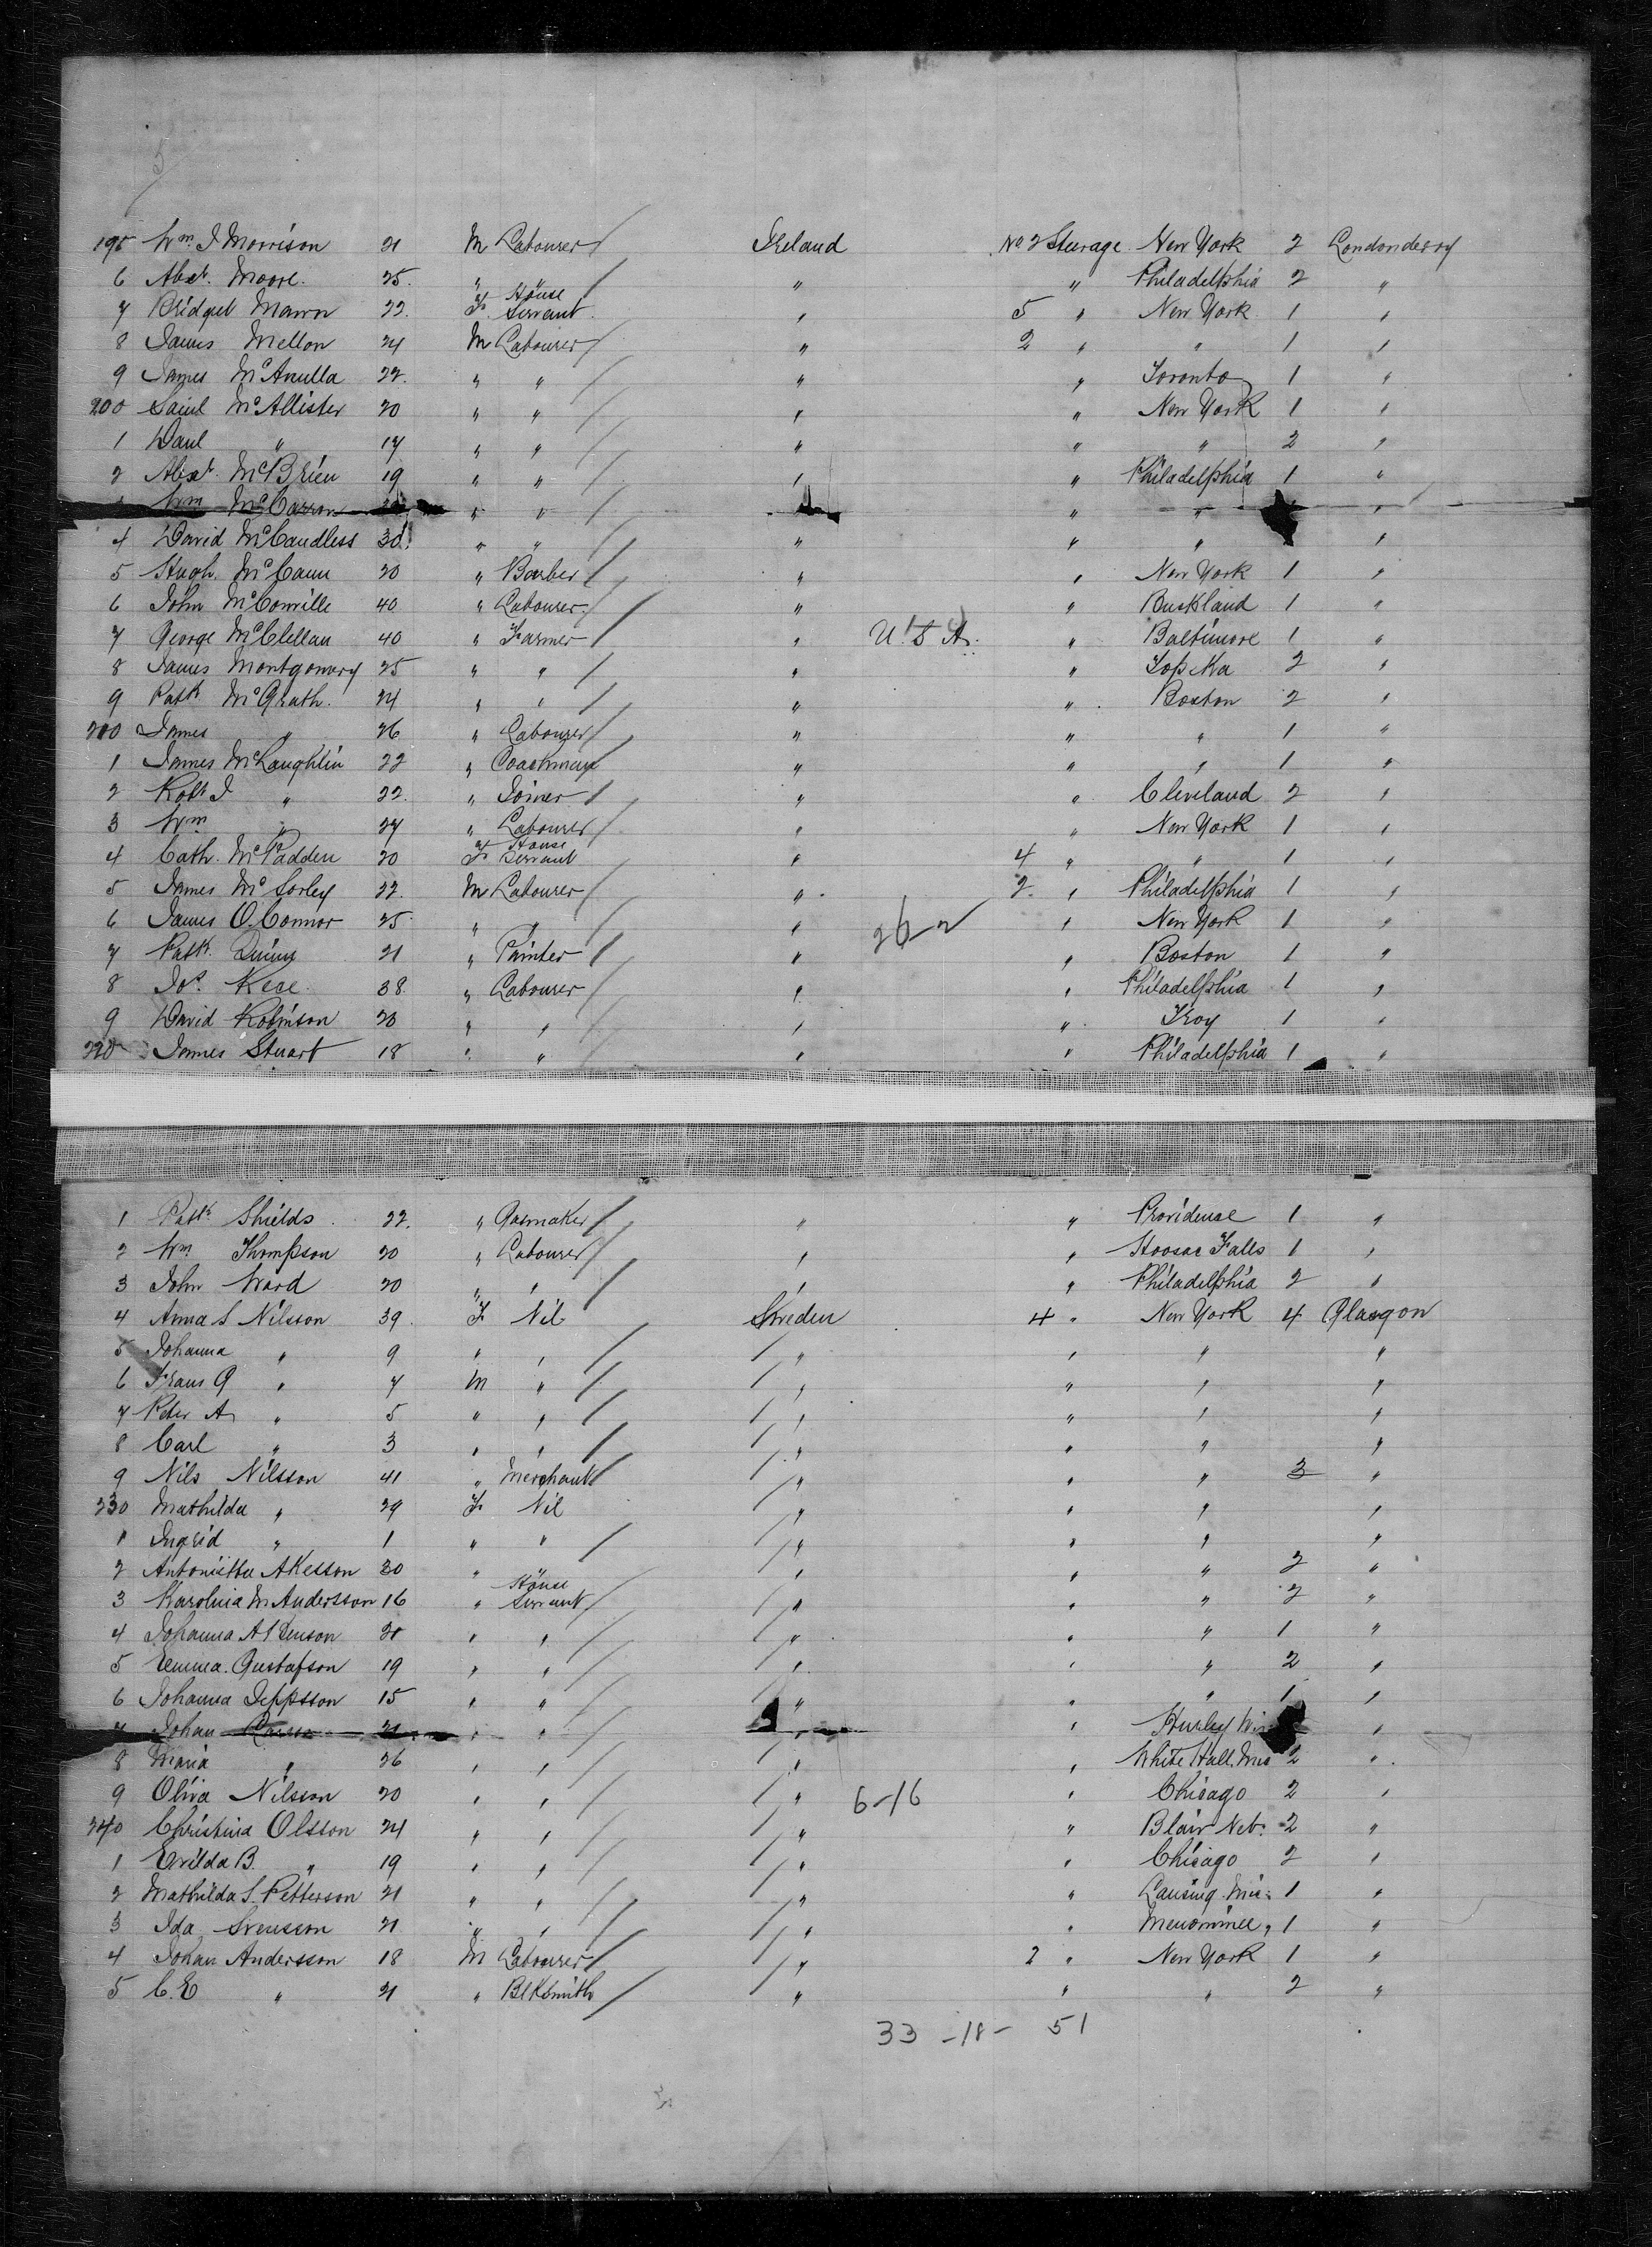 5
195 Wm. J Morrison 21 M Labourer Ireland No 2 Steerage New York 2 Londonderry
6 Alexr. Moore. 25. " " " " Philadelphia 2 "
7 Bridget 22. F House Servant " 5 " New York 1 "
8 James Mellon 24 M Labourer " 2 " " 1 "
9 James McAnulla 22. " " " " Toronto 1 "
200 Saml McAllister 20 " " " " New York 1 "
1 Danl " 17 " " " " " 2 "
2 Alexr. McBrien 19 " " " " Philadelphia 1 "
Wm McCarron " " " " "
4 David McCandless 30. " " " " " "
5 Hugh. McCann 20 " Barber " " New York 1 "
6 John McConville 40 " Labourer " " Buckland 1 "
7 George McClellan 40 " Farmer " U.S.A. " Baltimore 1 "
8 James Montgomery 25 " " " " Topeka 2 "
9 Patk McGrath. 24 " " " " Boston 2 "
210 James " 26 " Labourer " " " 1 "
1 James McLaughlin 22 " Coachman " " " 1 "
2 Robt J " 22. " Joiner " " Cleveland 2 "
3 Wm " 27 " Labourer " " New York 1 "
4 Cath. McFadden 20 F House Servant " 4 " " 1 "
5 James McSorley 22. M Labourer " 2. " Philadelphia 1 "
6 James O.Connor 25. " " " 26-2 " New York 1 "
7 Patk. Quinn 21 " Painter " " Boston 1 "
8 Jos. 38 " Labourer " " Philadelphia 1 "
9 David Robinson 20 " " " " Troy 1 "
220 James Stuart 18 " " " " Philadelphia 1 "
1 Patk. Shields 22. " Gasmaker " " Providence 1 "
2 Wm Thompson 20 " Labourer " " Hoosac Falls 1 "
3 John Ward 20 " " " " Philadelphia 2 "
4 Anna S Nilsson 39. F Nil Sweden 4 " New York 4 Glasgow
5 Johanna " 9 " " " " " "
6 Frans G " 7 M " " " " "
7 Peter A " 5 " " " " " "
8 Carl " 3 " " " " " "
9 Nils Nilsson 41 " Merchant " " " 3 "
230 Mathilda " 29 F Nil " " " "
1 Ingrid " 1 " " " " " "
2 Antonietta Akesson 30 " " " " 2 "
3 Karolina M Andersson 16 " House Servant " " " 2 "
4 Johanna " " " " " 1 "
5 Emma. Gustafson 19 " " " " " 2 "
6 Johanna Jeppsson 15 " " " " " 1 "
7 Johan 21 " " " " Hurley Wis "
8 Maria " 26 " " " " White Hall, 2 "
9 Oliva Nilsson 20 " " " 6-16 " Chicago 2 "
240 Christina Olsson 24 " " " " Blair Neb. 2 "
1 " 19 " " " " Chicago 2 "
2 Mathilda S. Petterson 21 " " " " Lansing 1 "
3 Ida Svensson 21 " " " " Menominee " 1 "
4 Johan Andersson 18 M Labourer " 2 " New York 1 "
5 C.E " 21 " Blksmith " " " 2 "
33 -18- 51